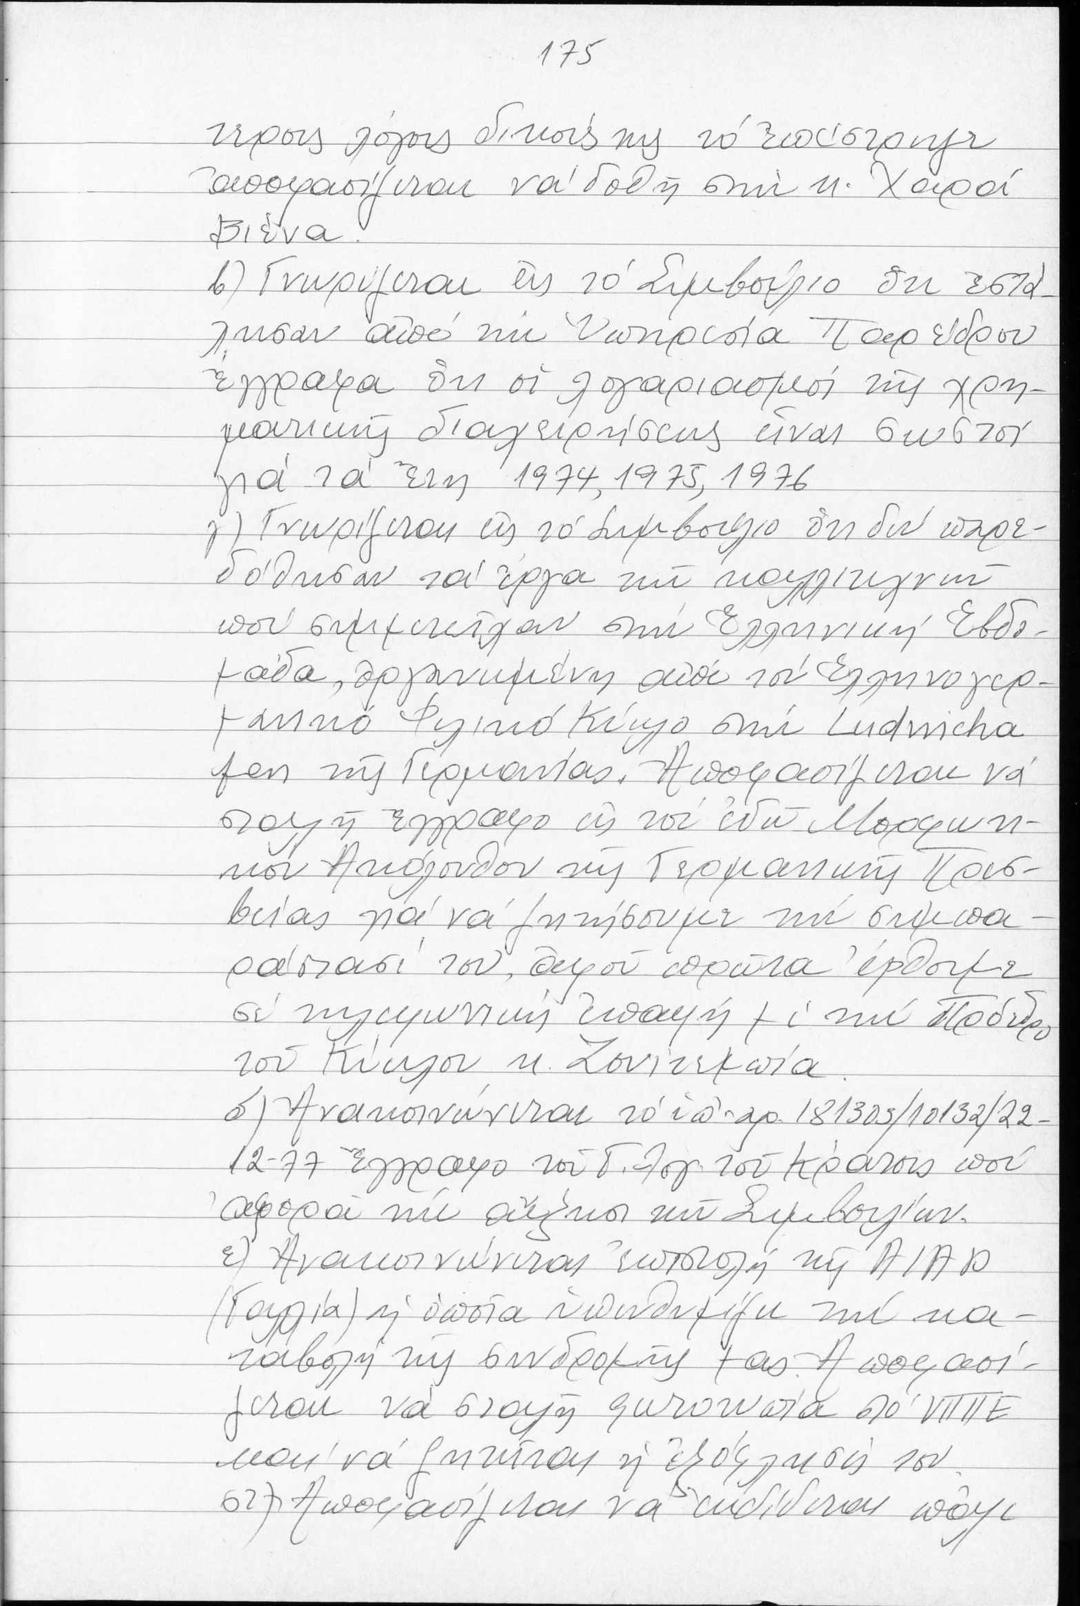 175
τερους λόγους δικούς της τό ἐπέστρεψε
ἀποφασίζεται νά δοθῆ στήν κ. Χαρά
Βιένα.
β) Γνωρίζεται εἰς τό Συμβούλιο ὅτι ἐστά-
λησαν ἀπό τήν Ὑπηρεσία Παρέδρου
ἔγγραφα ὅτι οἱ λογαριασμοί τῆς χρη-
ματικῆς διαχειρήσεως εἶναι σωστοί
γιά τά ἔτη 1974, 1975, 1976
γ) Γνωρίζεται εἰς τό Συμβούλιο ὅτι δέν παρε-
δόθησαν τά ἔργα τῶν καλλιτεχνῶν
πού συμμετεῖχαν στήν Ἑλληνική Ἑβδο-
μάδα, ὀργανωμένη ἀπό τόν Ἑλληνογερ-
μανικό Φιλικό Κύκλο στήν Ludwicha
fen τῆς Γερμανίας. Ἀποφασίζεται νά
σταλῆ ἔγγραφο εἰς τόν ἐδῶ Μορφωτι-
κόν Ἀκόλουθον τῆς Γερμανικῆς Πρεσ-
βείας γιά νά ζητήσουμε τήν συμπα-
ράστασί του, ἀφοῦ πρῶτα ἔρθουμε
σέ τηλεφωνική ἐπαφή μέ τήν Πρόεδρο
τοῦ Κύκλου κ.
δ) Ἀνακοινώνεται τό ὑπ. ἀρ. 181305/10132/22-
12-77 ἔγγραφο τοῦ Γ. Λογ. τοῦ Κράτους πού
ἀφορᾶ τήν αὔξησι τῶν Συμβουλίων.
ε) Ἀνακοινώνεται ἐπιστολή τῆς AIAP
(Γαλλία) ἡ ὁποία ὑπενθυμίζει τήν κα-
ταβολή τῆς συνδρομῆς μας. Ἀποφασί-
ζεται νά σταλῆ φωτοκοπία στό ΥΠΠΕ
καί νά ζητεῖται ἡ ἐξόφλησίς του.
στ) Ἀποφασίζεται νά ἐκδίδεται πάλι